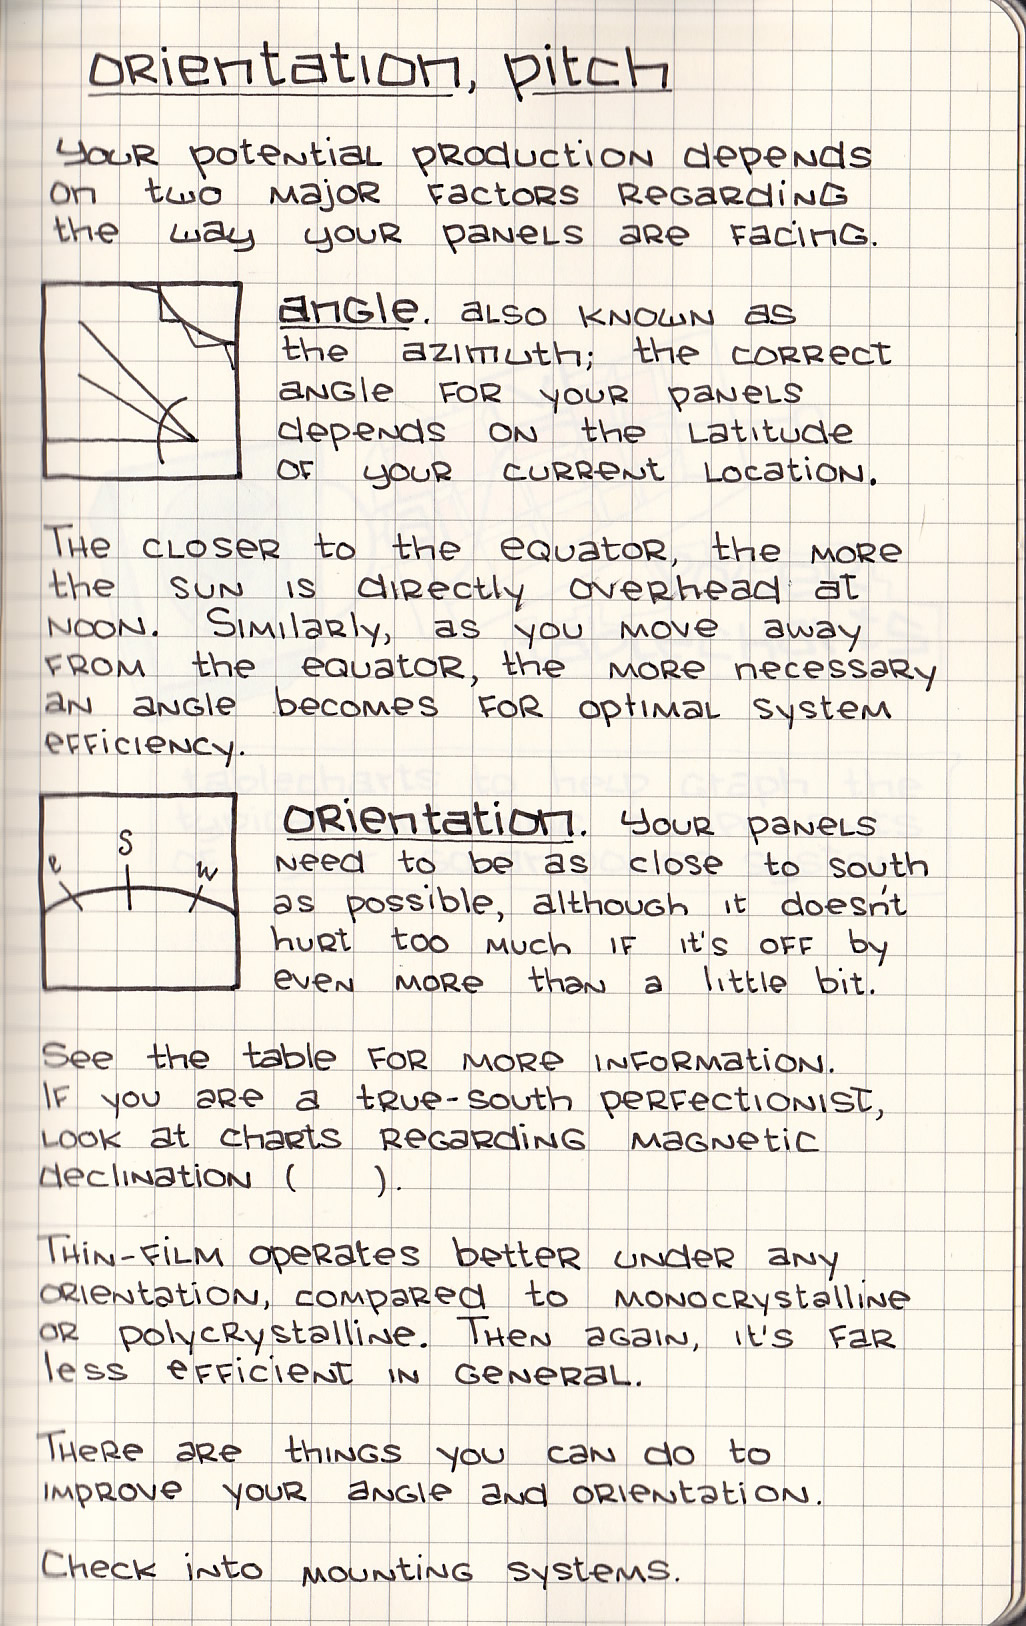 Orientation, pitch
Your potential production depends
on two major factors regarding
the way your panels are facing.
angle. also known as
the azimuth; the correct
angle for your panels
depends on the latitude
of your current location.
The closer to the equator, the more
the sun is directly overhead at
noon. Similarly, as you move away
from the equator, the more necessary
an angle becomes for optimal system
efficiency.
S
e
w
Orientation. Your panels
need to be as close to south
as possible, although it doesn't
hurt too much if it's off by
even more than a little bit.
See the table for more information.
If you are a true-south perfectionist,
look at charts regarding magnetic
declination ( ).
Thin-film operates better under any
orientation, compared to monocrystalline
or polycrystalline. Then again, it's far
less efficient in general.
There are things you can do to
improve your angle and orientation.
Check into mounting systems.